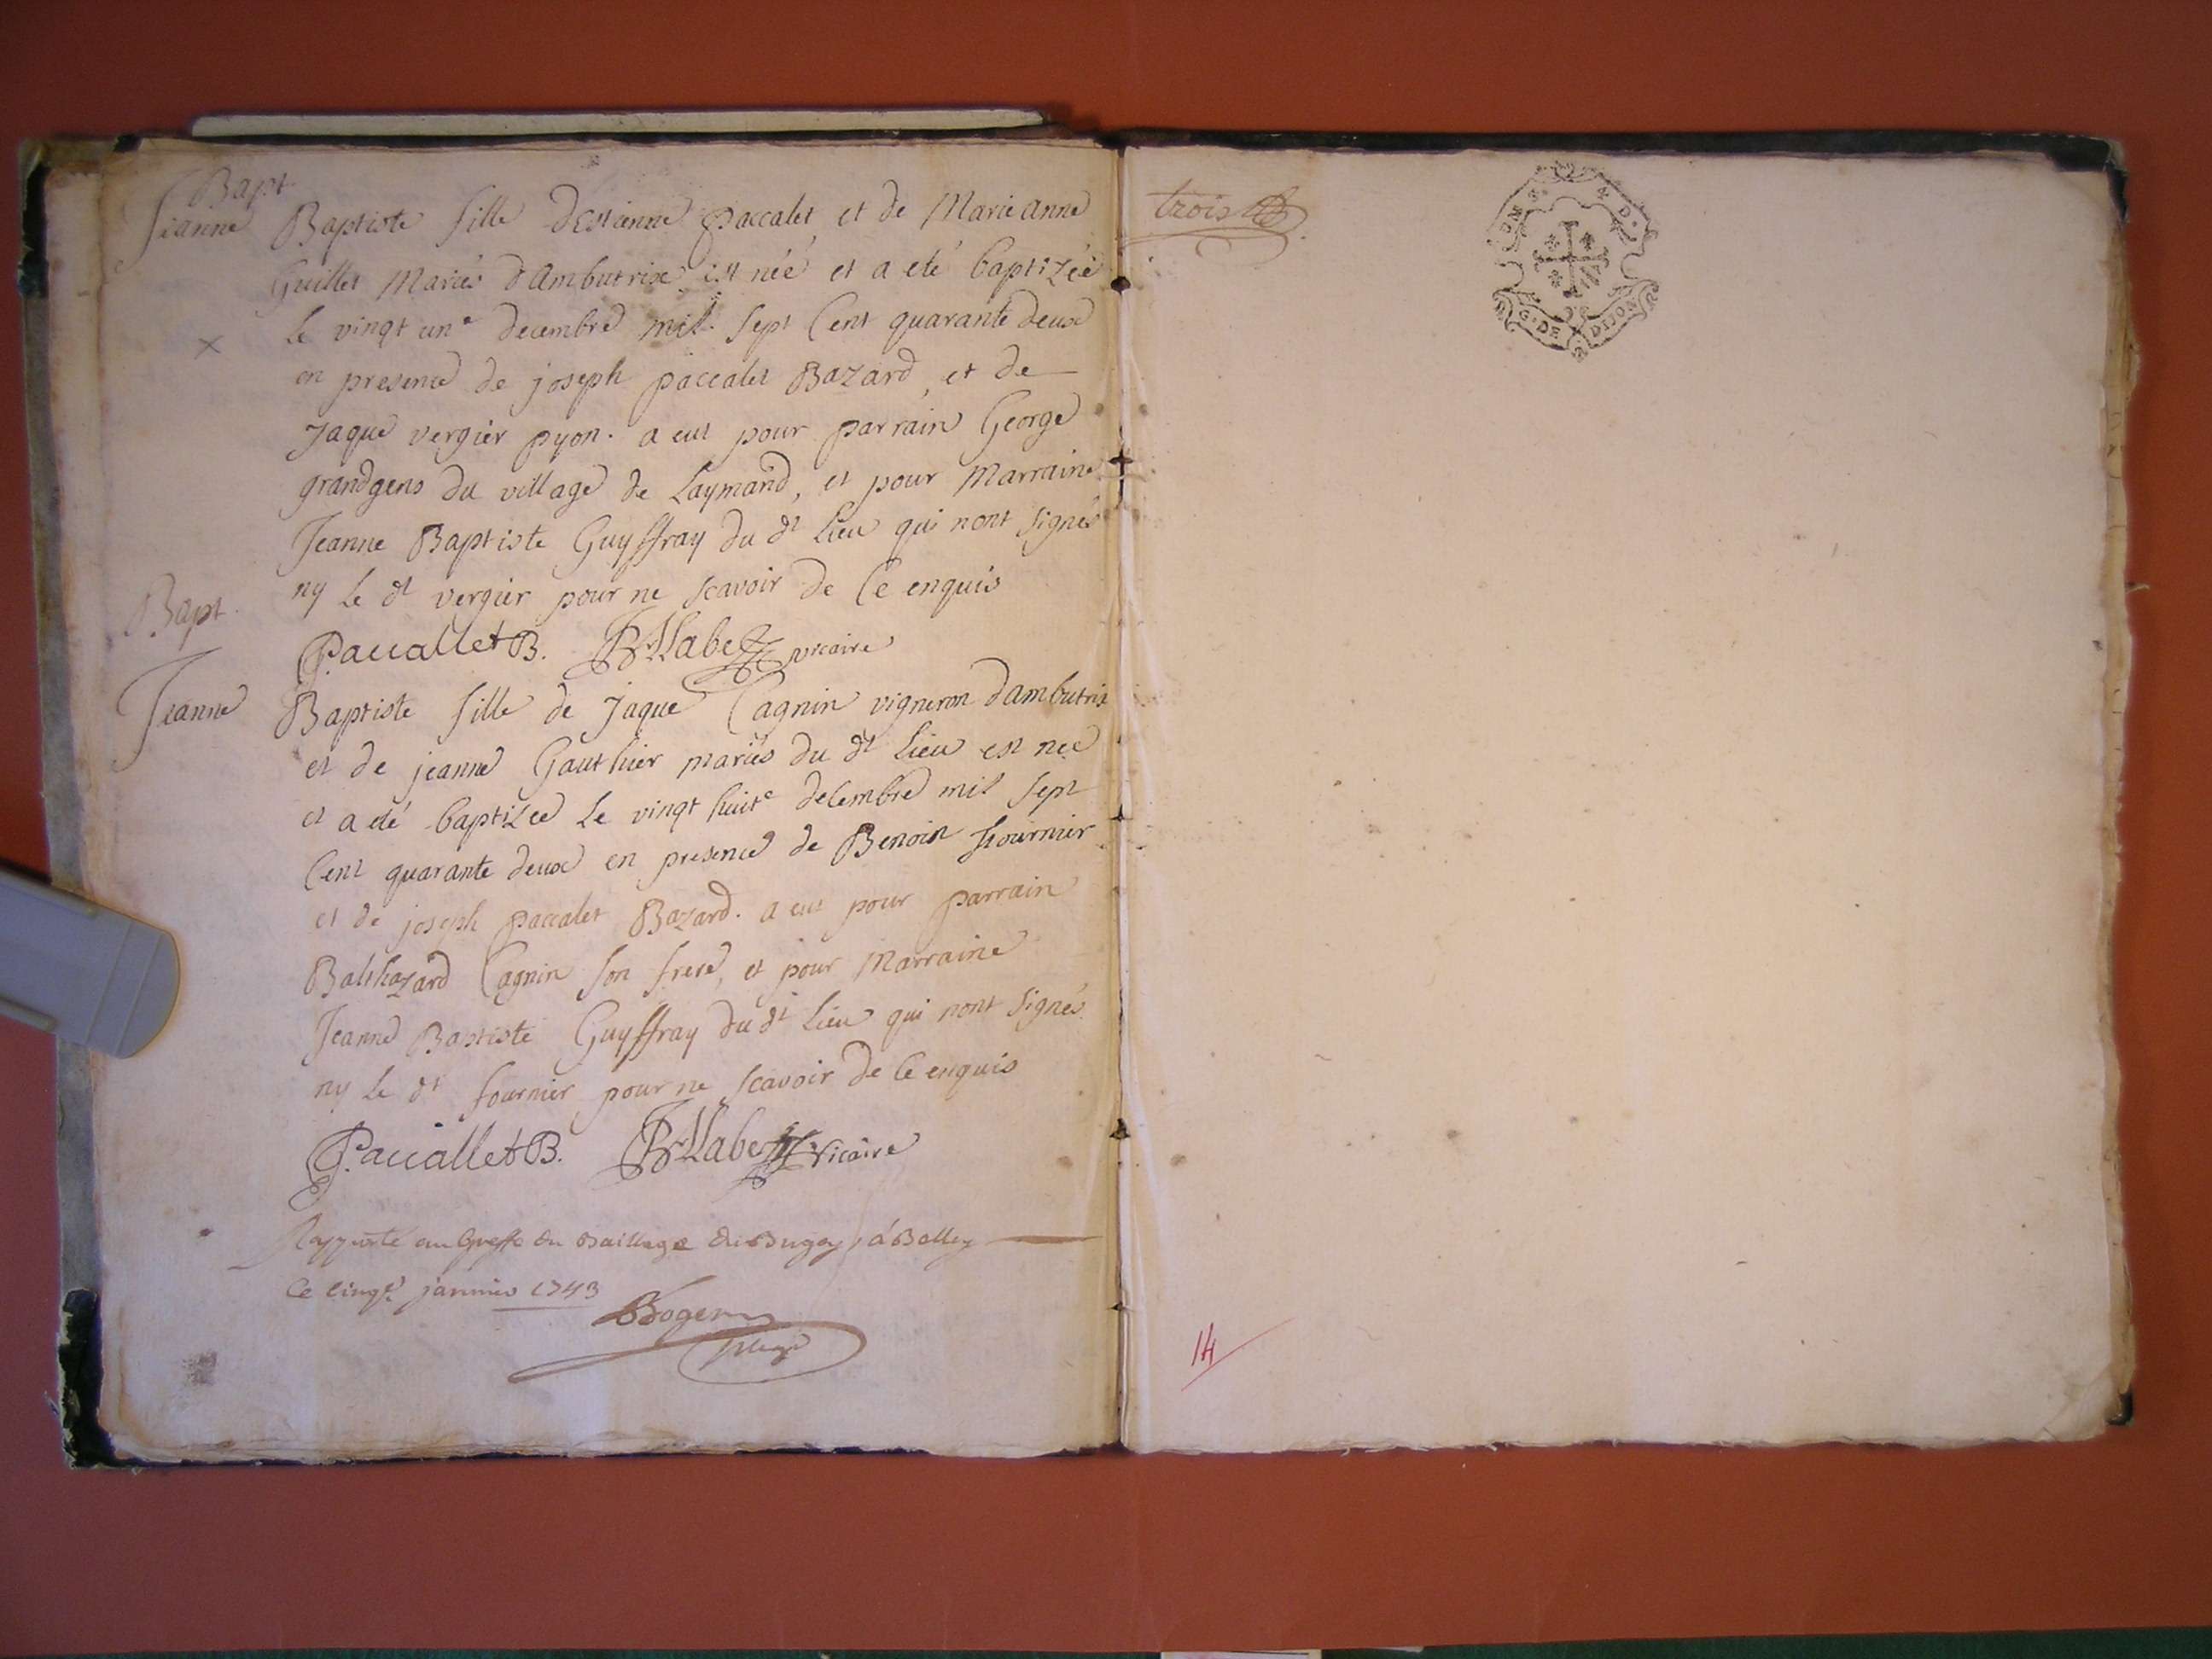 Bapt
Jeanne Baptiste fille dEstienne paccalet et de Marie anne
Guillet Mariés d'Ambutrix est née et a eté baptizée
le vingt un.e decembre mil sept Cent quarante deux
en presence de joseph paccalet Bazard, et de
Jaque vergier pyon. a eut pour parrain George
grandgens du village de Laymand, et pour Marraine
Jeanne Baptiste Guyffray du dt lieu qui nont signés
ny le dt vergier pour ne scavoir de Ce enquis
Paccallet B. vicaire
Bapt.
Jeanne Baptiste fille de Jaque Cagnin vigneron dambutrix
et de jeanne Gauthier mariés du dt lieu est née
et a eté baptizee le vingt huit.e decembre mil sept
Cent quarante deux en presence de Benoit fournier
et de joseph paccalet Bazard. a eut pour parrain
Balthazard Cagnin son frere, et pour Marraine
Jeanne Baptiste Guyffray du dt lieu qui nont signés
ny le dt fournier pour ne scavoir de Ce enquis
Paccallet B. vicaire
Rapporté au Greffe du Bailliage du Bugey à Belley
Ce cinqe janvier 1743
Bogern
trois
G. DE DIJON
14